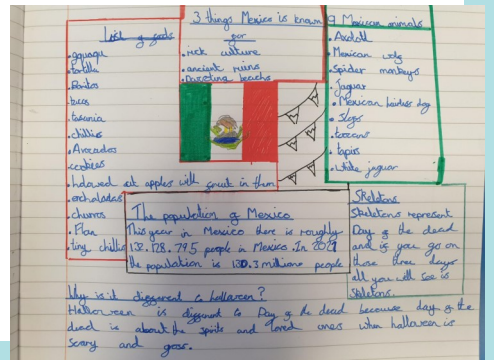 List of foods
• guaqu
• tortilla
• Boritos
• tacos
• tasania
• chillies
• Avocados
cookies
• halowed out apples with fruit in them
• enchaladas
• churros
• Flan
• tiny chillis
3 things Mexico is known
for
• rich culture
• ancient ruins
• Dazeling beachs
9 Mexican animals
• Axolotl
• Mexican wolf
• Spider monkeys
• Jaguar
• Mexican hairless dog
• Slogs
• toucans
• tapirs
• White jaguar
The population of Mexico
This year in Mexico there is roughly
132.728.795 people in Mexico. In 2021
the population is 130.3 millions people
Skeletons
Skeletons represent
Day of the dead
and if you go on
those three days
all you will see is
Skeletons.
Why is it different to halloween?
Halloween is different to Day of the dead because day of the
dead is about the spirits and loved ones when halloween is
scary and gross.